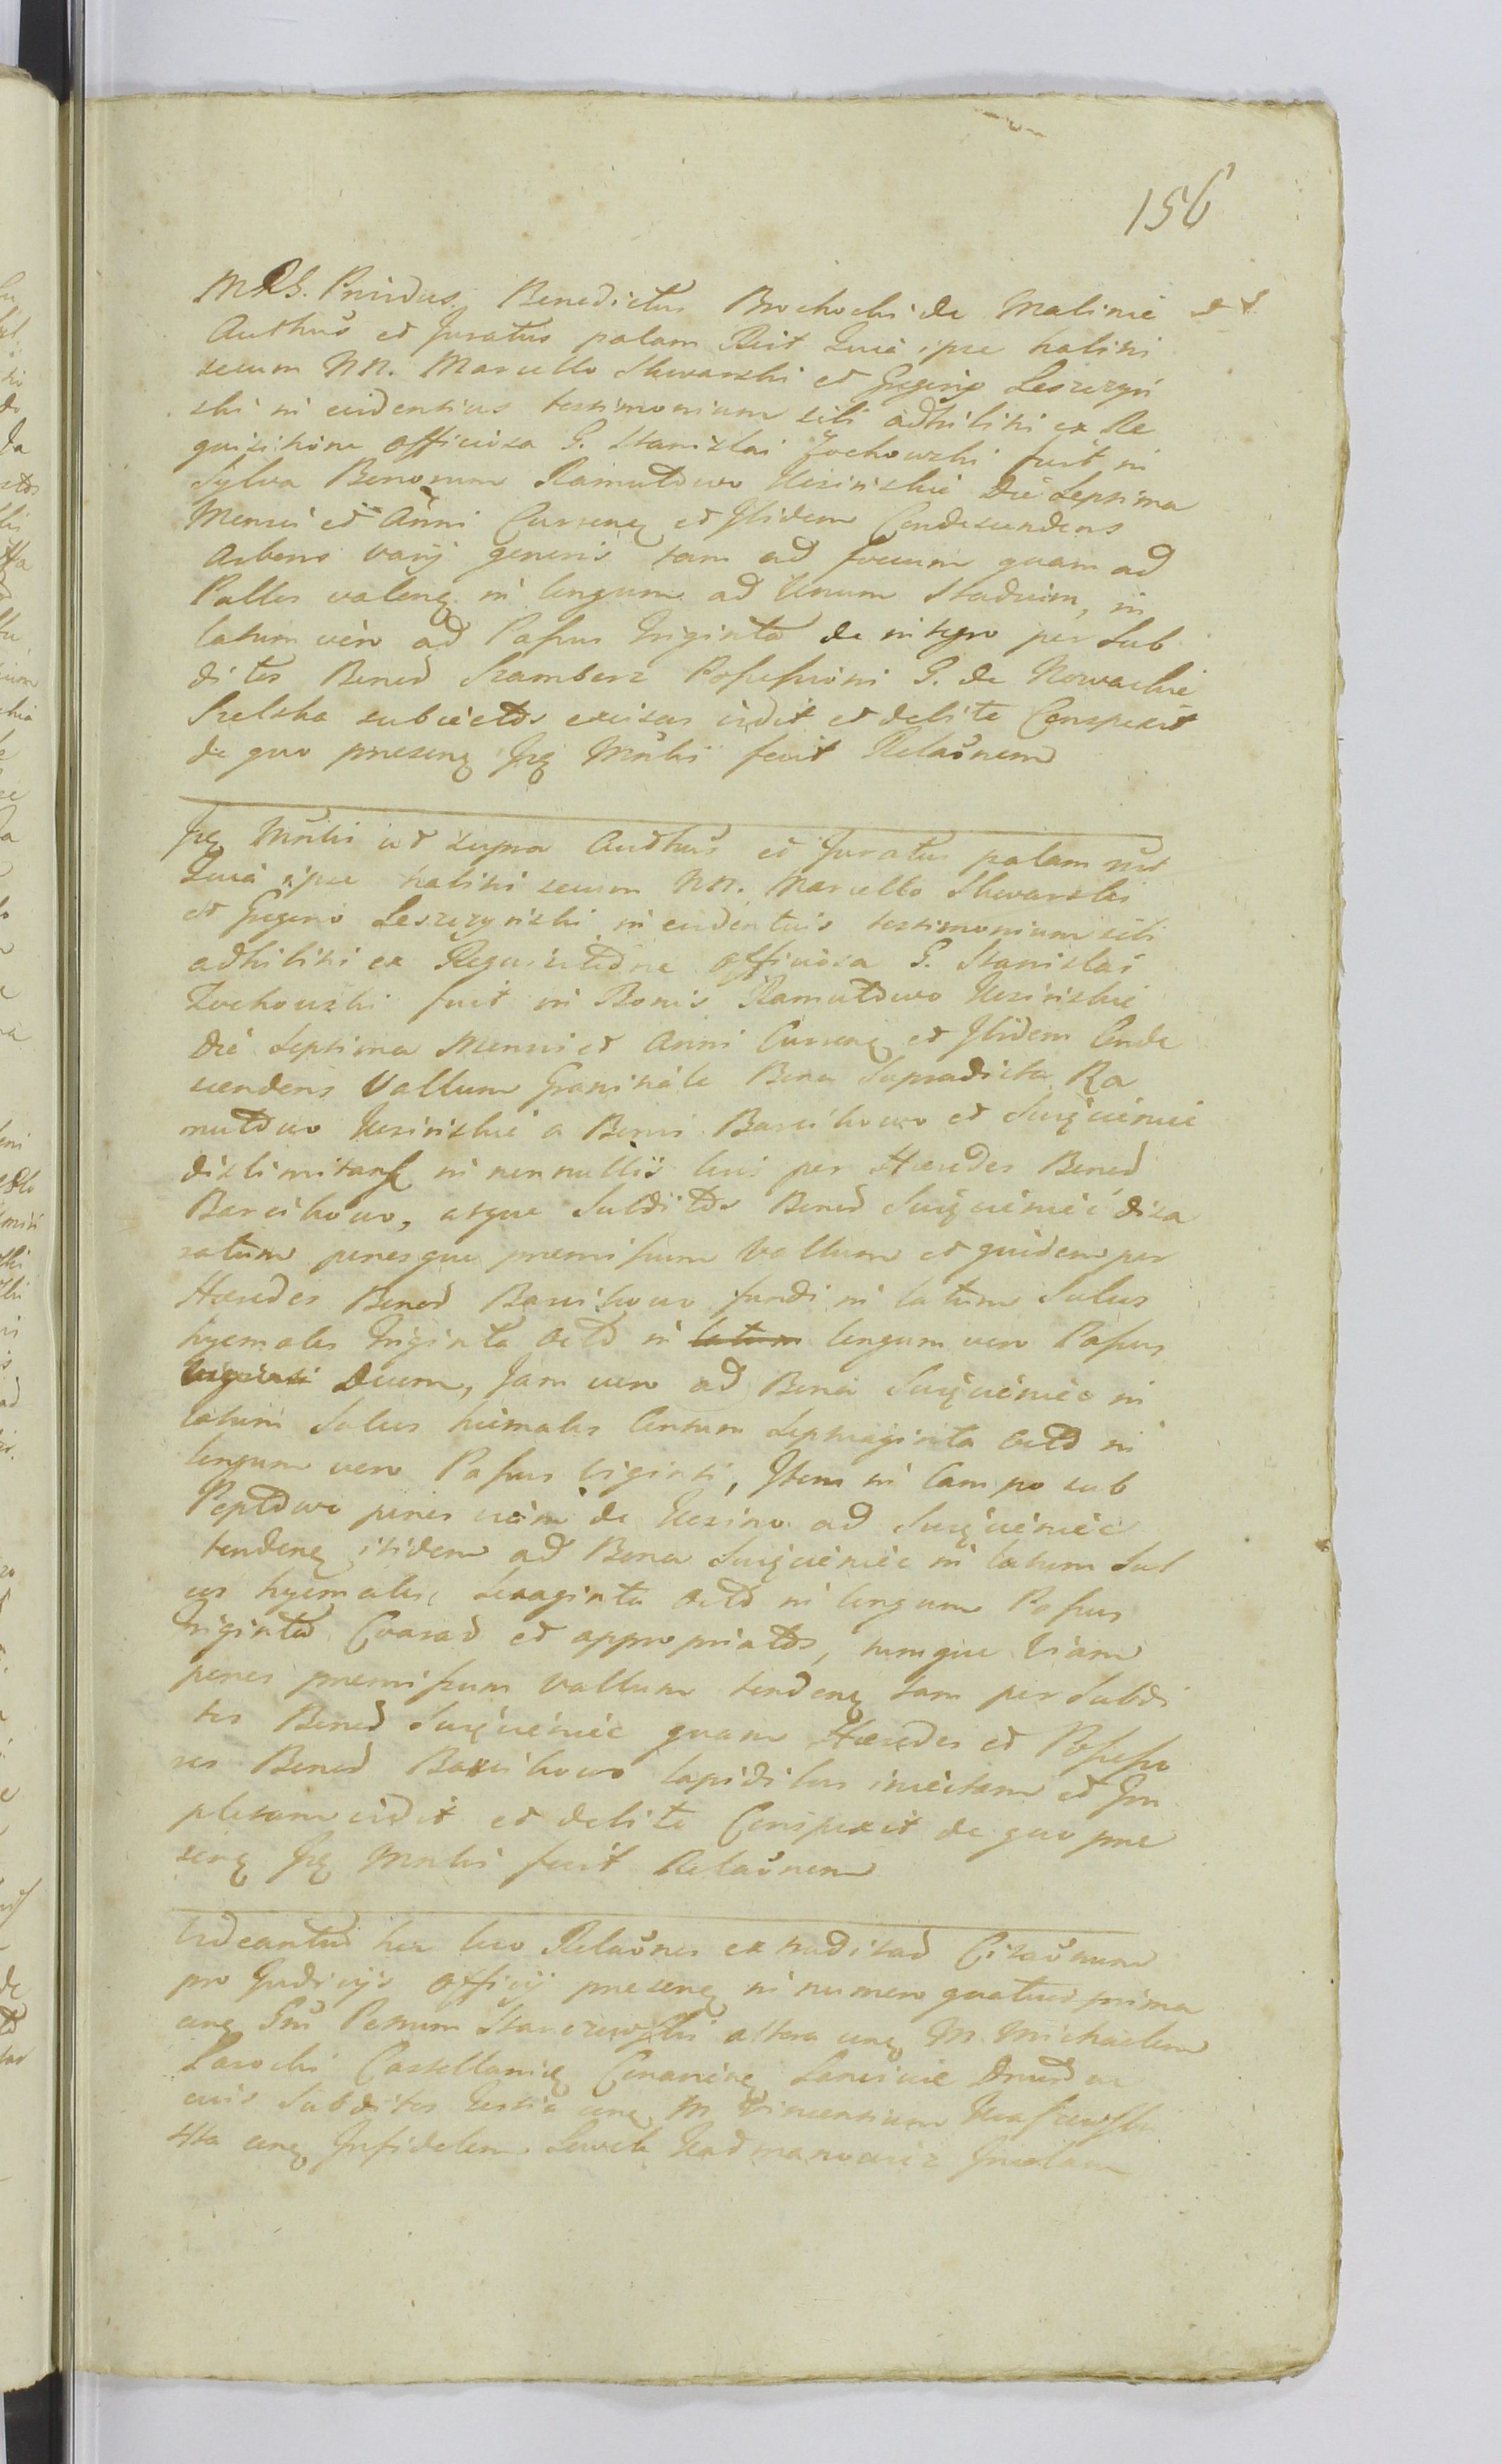 156
MRS. Prividus Benedictus Brochocki de Malinie et
Authus et Juratus palam Rcit Quia ipse habiti
secum NN. Marcello Skwarski et Gregorio Leszczyń
ski in evidentius testimonium sibi adhibiti ex Re
quisitione officiosa G. Stanislai Żochowski fuit in
Sylva Bonorum Ramutowo Uszinskie Die Septima
Mensis et Anni Curren et Ibidem Condescendens
Arbores varij generis tam ad focum quam ad
Palles valen in longum ad Unum Stadium, in
latum vero ad Passus Triginta de integro per Sub
ditos Bonod Szambers Possessioni G. de Nowackie
Szelska subiectos excisas vidit et debite Conspexit
de quo presens Ips Mnlis fecit Relaonem
Ips Mnlis ut supra Authus et Juratus palam rcit
Quia ipse habiti secum NN. Marcello Skwarski
et Gregorio Leszczynski in evidentius testimonium sibi
adhibiti ex Requisitione officiosa G. Stanislai
Zochowski fuit in Bonis Ramutowo Uszinskie
Die Septima Mensis et Anni Curren et Ibidem Conde
scendens Vallum Graniciale Bona Supradicta Ra
mutowo Uszinskie a Bonis Barcikowo et Święcieniec
dislimitans in nonnullis locis per Hæredes Bonod
Barcikowo, atque Subditos Bonod Święcieniec disa
ratum penesque premissum Vallum et quidem per
Hæredes Bonod Barcikowo fundi in latum Sulcus
hyemales Triginta Octo in latum longum vero Passus
Decem, Jam vero ad Bona Święcieniec in
latum Sulcus hiemales Centum Septuaginta Octo in
longum vero Passus Viginti, Item in Campo sub
Peptowo penes viam de Uszino ad Święcieniec
tenden itidem ad Bona Święcieniec in latum Sul
cos hyemales Sexaginta Octo in longum Passus
Triginta Exarad et appropriatos, tumque Viam
penes premissum Vallum tenden tam per Subdi
tos Bonod Święcieniec quam Hæredes et Possesso
res Bonod Barcikowo lapidibus iniectam et Im
pletam vidit et debite Conspexit de quo pre
sens Ips Mnlis fecit Relaonem
Videantur hoc loco Relaones ex tradi Citaonum
pro Judicijs Officij presen in numero quatuor prima
cirq Petrum altera cirq M. Michaelem
Lasocki Castellanic
cuis Subditos tertia cirq M Vincentium
4ta cirq Infidelem Lewek Incolam